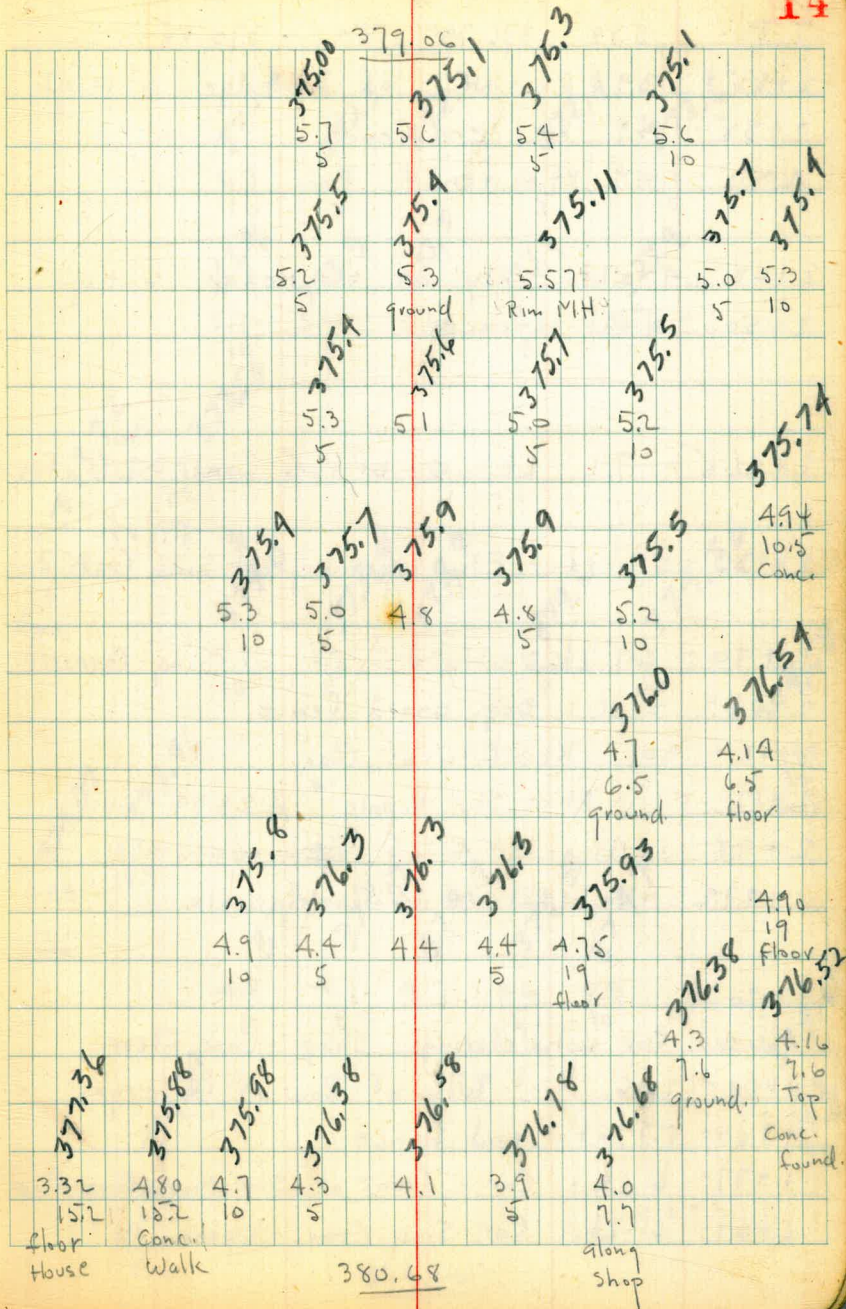 14
379.06
375.00 375.1 375.3 375.1
5.7 5.6 5.4 5.6
5 5 10
375.5 375.4 375.11 375.7 375.4
5.2 5.3 5.57 5.0 5.3
5 ground Rim M.H. 5 10
375.4 375.6 375.7 375.5
5.3 5.1 5.0 5.2
5 5 10
375.74
4.94
10.5
Conc.
375.4 375.7 375.9 375.9 375.5
5.3 5.0 4.8 4.8 5.2
10 5 5 10
376.0 376.54
4.7 4.14
6.5 6.5
ground. floor
375.8 376.3 376.3 376.3 375.93
4.90
19
floor
4.9 4.4 4.4 4.4 4.75
10 5 5 19
floor
376.38 376.52
4.3 4.16
7.6 7.6
ground. Top
Conc.
found.
377.36 375.88 375.98 376.38 376.58 376.78 376.68
3.32 4.80 4.7 4.3 4.1 3.9 4.0
15.2 15.2 10 5 5 7.7
floor Conc. along
House Walk Shop
380.68